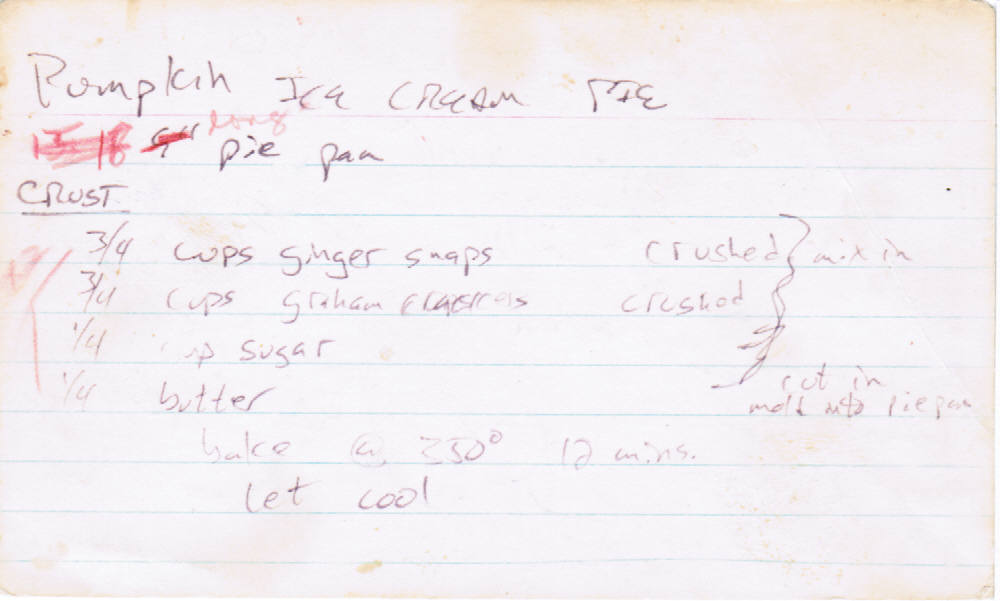 Pumpkin ICE CREAM PIE
9" long pie pan
CRUST
3/4 cups ginger snaps crushed } mix in
3/4 cups graham crackers crushed
1/4 cup sugar
1/4 butter cut in
mold into pie pan
bake @ 350° 12 mins.
let cool